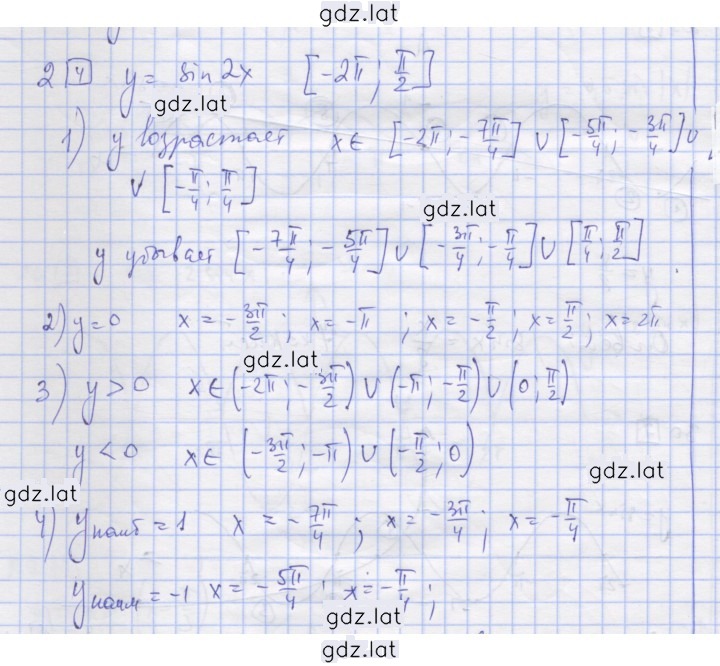 gdz.lat
2 [4] y = sin 2x [-2π; π/2]
gdz.lat
1) y возрастает x ∈ [-2π; -7π/4] ∪ [-5π/4; -3π/4] ∪
∪ [-π/4; π/4]
gdz.lat
y убывает [-7π/4; -5π/4] ∪ [-3π/4; -π/4] ∪ [π/4; π/2]
2) y = 0 x = -3π/2; x = -π; x = -π/2; x = π/2; x = 2π
gdz.lat
3) y > 0 x ∈ (-2π; -3π/2) ∪ (-π; -π/2) ∪ (0; π/2)
y < 0 x ∈ (-3π/2; -π) ∪ (-π/2; 0)
gdz.lat
gdz.lat
4) y наиб = 1 x = -7π/4; x = -3π/4; x = -π/4
y наим = -1 x = -5π/4; x = -π/4;
gdz.lat
gdz.lat